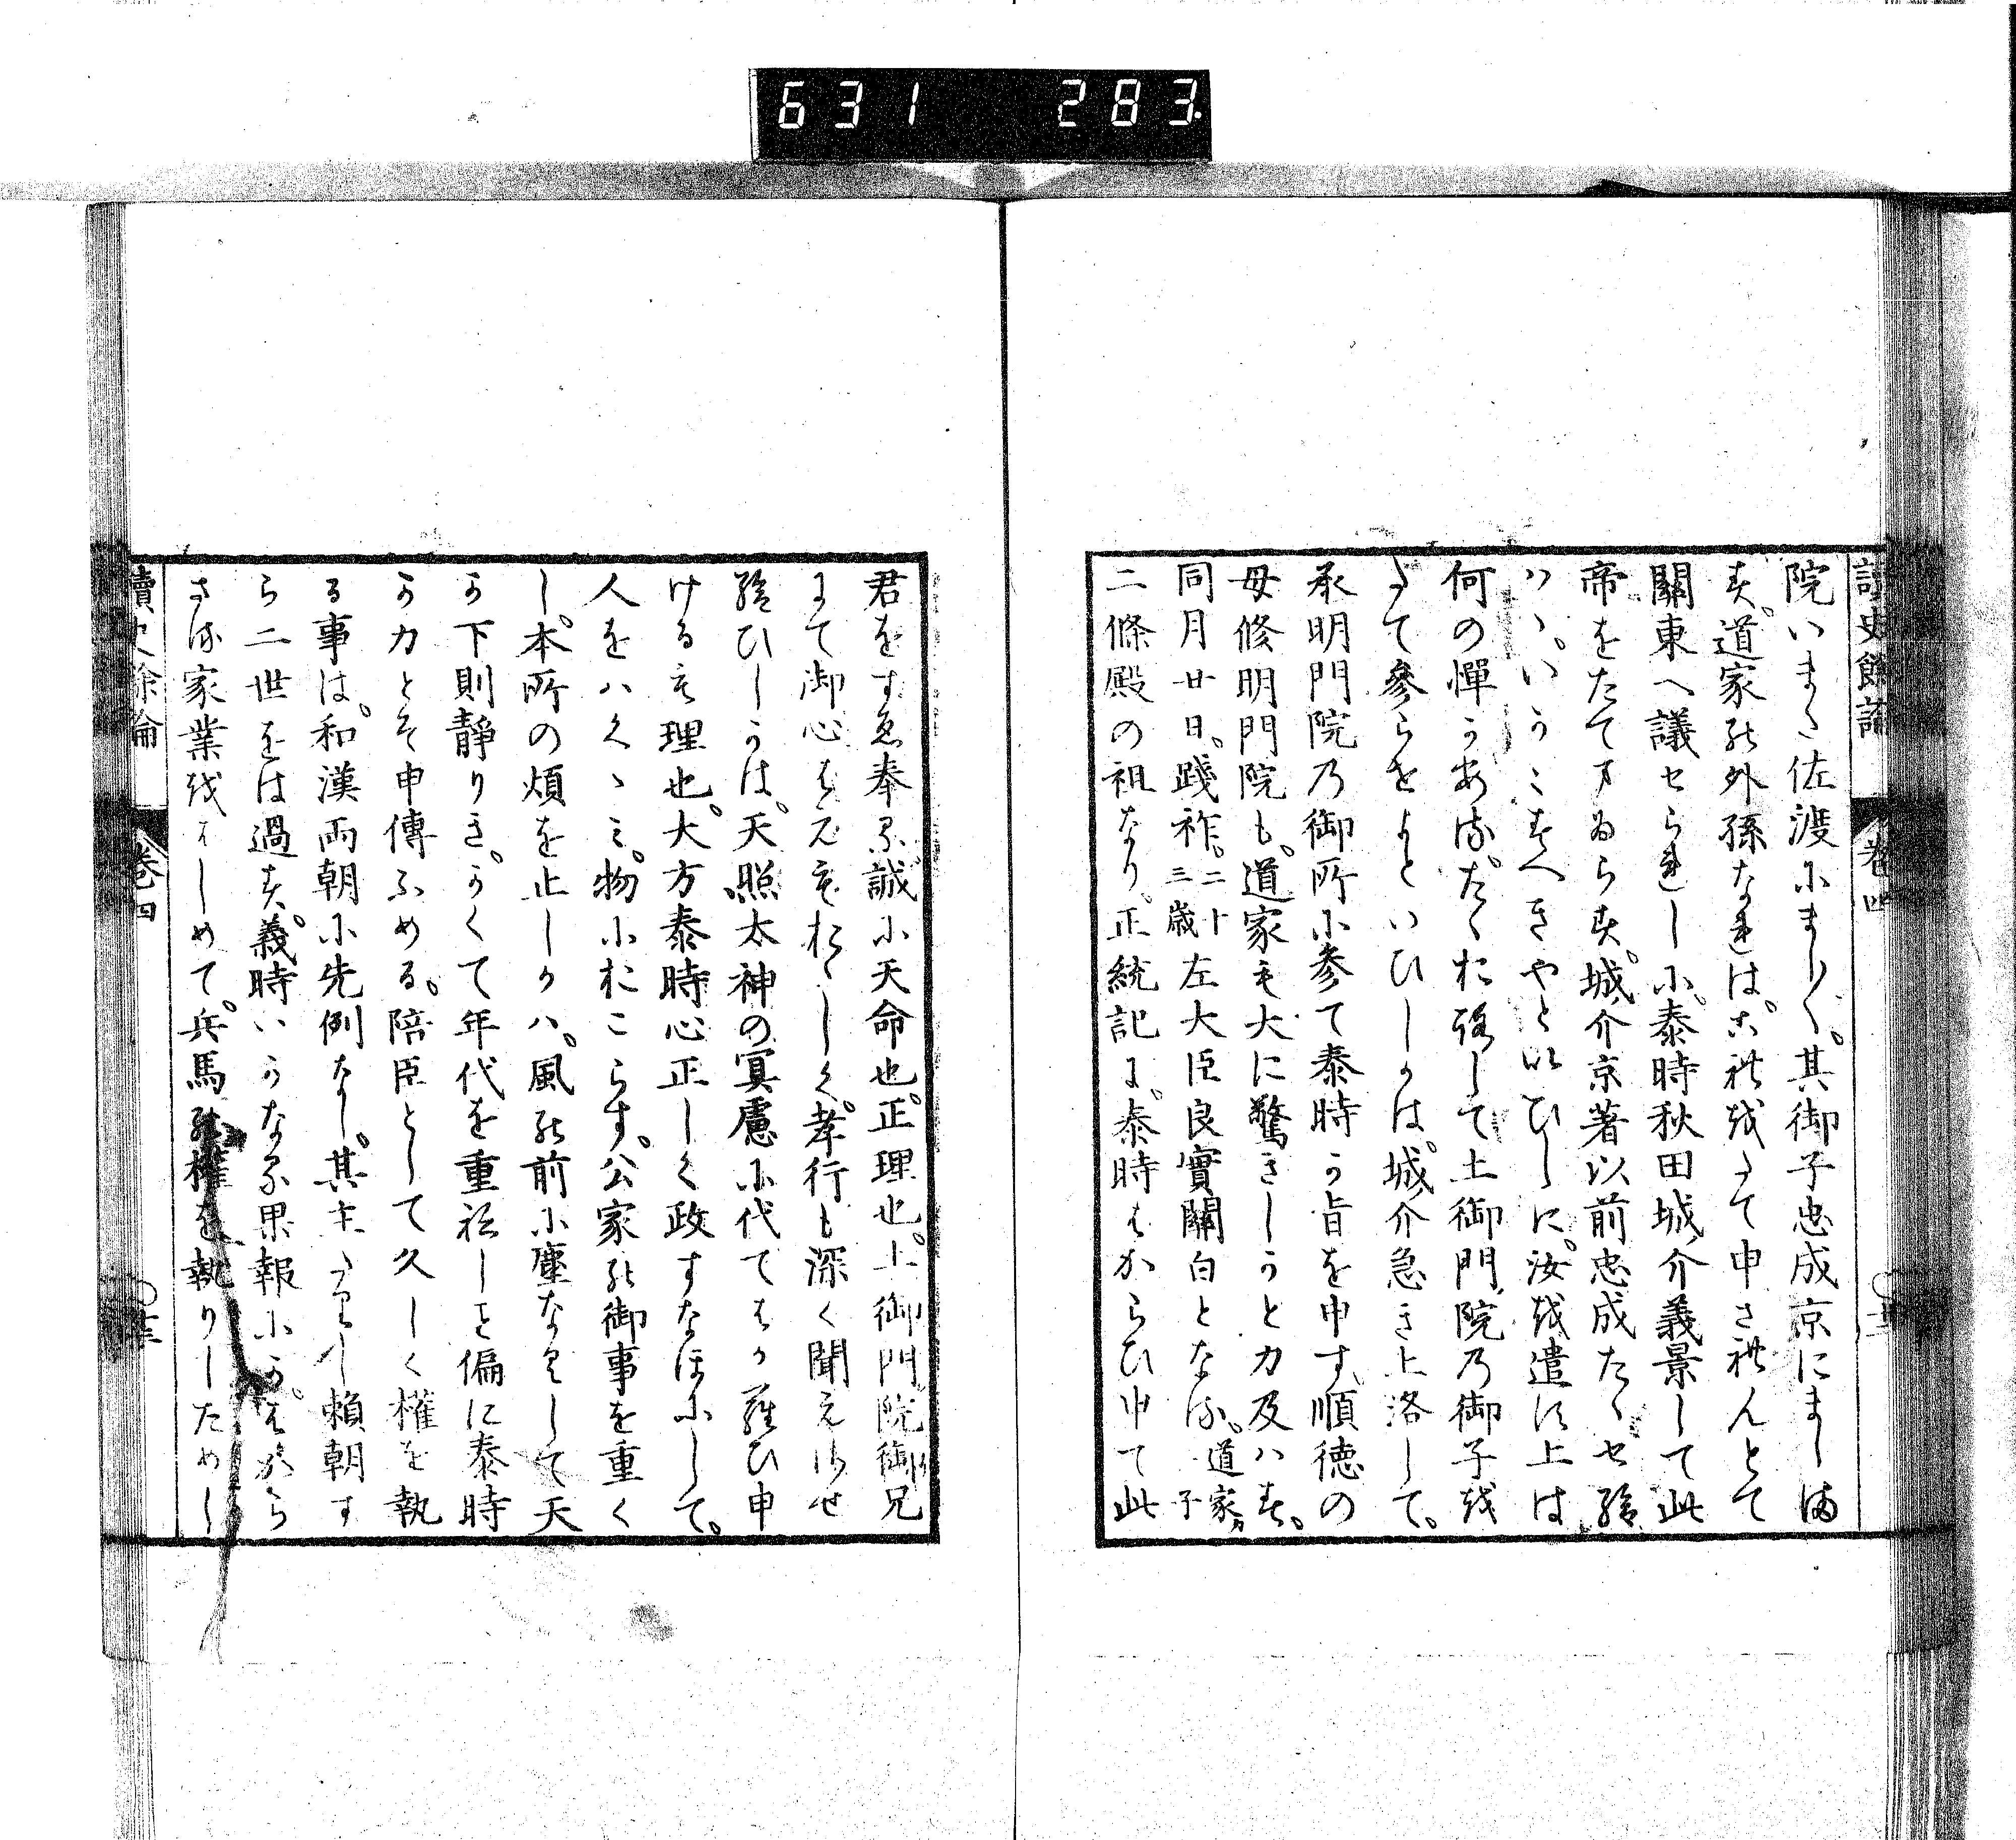 631 283
讀史餘論 卷四
院いまた佐渡にまし〳〵。其御子忠成京にましま
す。道家の外孫なれは。これをたて申されんとて
關東へ議せられしに。泰時秋田城介義景して此
帝をたてまゐらす。城介京著以前忠成たゝせ給
ハヽ。いかゝすへきやといひしに。汝を遣す上は
何の憚かある。たゝおろして土御門院の御子を
たて參らせよといひしかは。城介急き上洛して。
承明門院の御所に參て泰時か旨を申す。順徳の
母修明門院も。道家も大に驚きしかと力及ハす。
同月廿日。踐祚。二十三歳左大臣良實關白となる。道家子
二條殿の祖なり。正統記に。泰時はからひ申て此
君をすゑ奉る誠に天命也。正理也。土御門院御兄
にて御心はえもおゝしく。孝行も深く聞えさせ
給ひしかは。天照太神の冥慮に代てはからひ申
けるも理也。大方泰時心正しく政すなほにして。
人をハくゝミ。物におこらす。公家の御事を重く
し。本所の煩を止しかハ。風の前に塵なくして天
か下則静りき。かくて年代を重ねしも偏に泰時
か力とそ申傳ふめる。陪臣として久しく權を執
る事は。和漢両朝に先例なし。其主たりし頼朝す
ら二世をは過す。義時いかなる果報にか。はからさる家業をはしめて。兵馬の權を執りしためし
讀史餘論 卷四